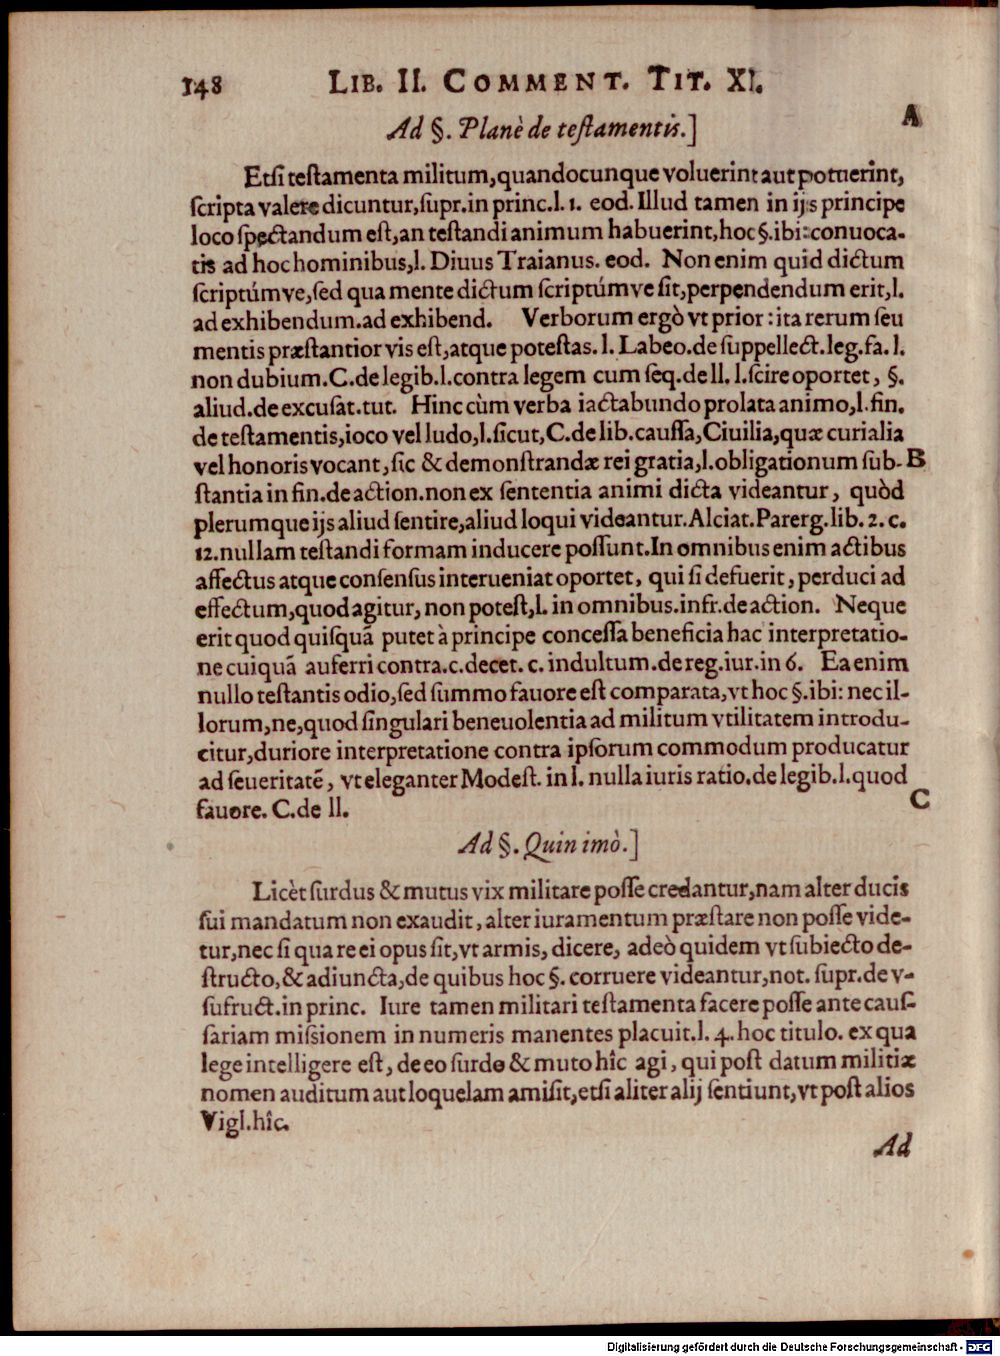 148 LIB. II. COMMENT. TIT. XI.
A
Ad §. Planè de teſtamentis.]
Etſi teſtamenta militum,quandocunque voluerint aut potuerint,
ſcripta valere dicuntur,ſupr.in princ.l. 1. eod. Illud tamen in ijs principe
loco ſpectandum eſt,an teſtandi animum habuerint,hoc §.ibi:conuoca-
tis ad hoc hominibus,l. Diuus Traianus. eod. Non enim quid dictum
ſcriptúmve,ſed qua mente dictum ſcriptúmve ſit,perpendendum erit,l.
ad exhibendum.ad exhibend. Verborum ergò vt prior : ita rerum ſeu
mentis præſtantior vis eſt,atque poteſtas. l. Labeo.de ſuppellect.leg.fa. l.
non dubium.C.de legib.l.contra legem cum ſeq.de ll. l.ſcire oportet, §.
aliud.de excuſat.tut. Hinc cùm verba iactabundo prolata animo,l.fin.
de teſtamentis,ioco vel ludo,l.ſicut,C.de lib.cauſſa,Ciuilia,quæ curialia
vel honoris vocant, ſic & demonſtrandæ rei gratia,l.obligationum ſub- B
ſtantia in fin.de action.non ex ſententia animi dicta videantur, quòd
plerumque ijs aliud ſentire,aliud loqui videantur.Alciat.Parerg.lib. 2. c.
12.nullam teſtandi formam inducere poſſunt.In omnibus enim actibus
affectus atque conſenſus interueniat oportet, qui ſi defuerit, perduci ad
effectum,quod agitur, non poteſt,l. in omnibus.infr.de action. Neque
erit quod quiſquã putet à principe conceſſa beneficia hac interpretatio-
ne cuiquã auferri contra.c.decet. c. indultum.de reg.iur.in 6. Ea enim
nullo teſtantis odio,ſed ſummo fauore eſt comparata,vt hoc §.ibi: nec il-
lorum,ne,quod ſingulari beneuolentia ad militum vtilitatem introdu-
citur,duriore interpretatione contra ipſorum commodum producatur
ad ſeueritatẽ, vt eleganter Modeſt. in l. nulla iuris ratio.de legib.l.quod
fauore. C.de ll.
C
Ad §. Quin imò.]
Licèt ſurdus & mutus vix militare poſſe credantur,nam alter ducis
ſui mandatum non exaudit, alter iuramentum præſtare non poſſe vide-
tur,nec ſi qua re ei opus ſit,vt armis, dicere, adeò quidem vt ſubiecto de-
ſtructo,& adiuncta,de quibus hoc §. corruere videantur,not. ſupr.de v-
ſufruct.in princ. Iure tamen militari teſtamenta facere poſſe ante cauſ-
ſariam miſsionem in numeris manentes placuit.l. 4. hoc titulo. ex qua
lege intelligere eſt, de eo ſurdo & muto hîc agi, qui poſt datum militiæ
nomen auditum aut loquelam amiſit,etſi aliter alij ſentiunt,vt poſt alios
Vigl.hîc.
Ad
Digitalisierung gefördert durch die Deutsche Forschungsgemeinschaft - DFG